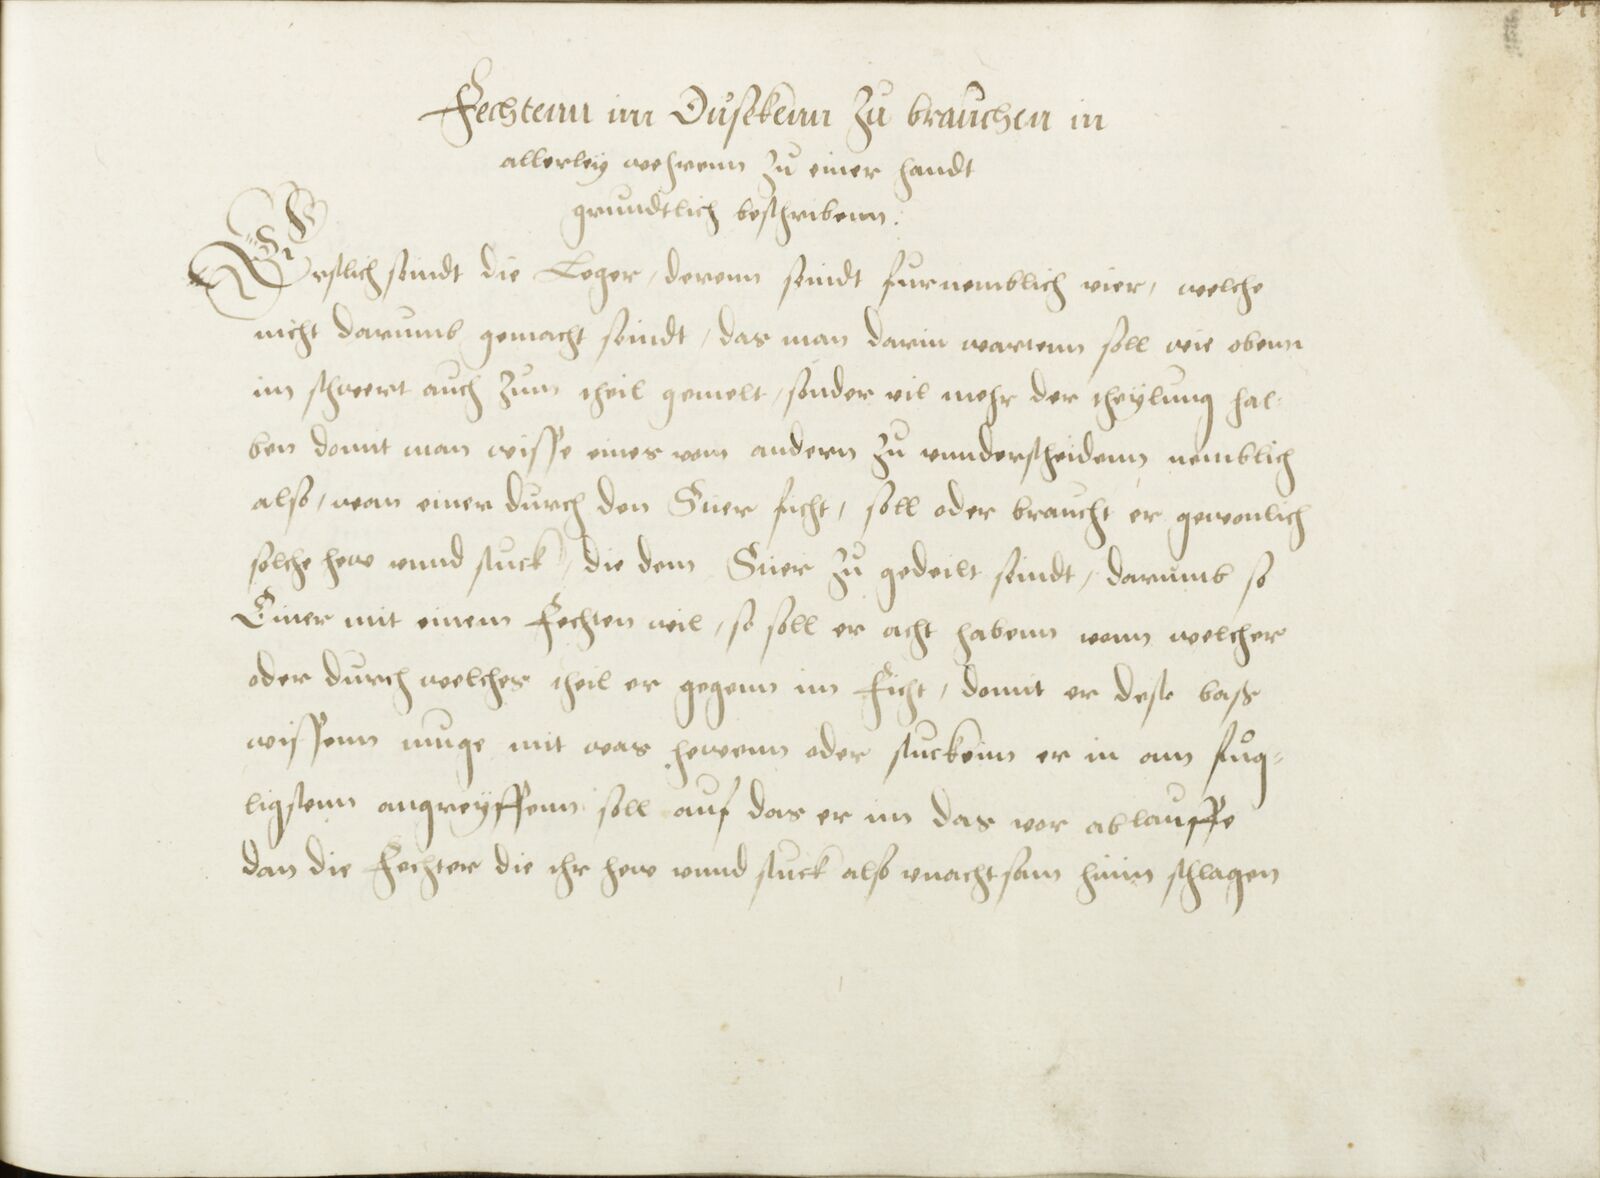 Fechtenn im Dusekenn zu brauchen in
allerley wehrenn zu einer handt
grundtlich beschribenn.
Erstlich seindt die Leger, derenn seindt furnemblich vier, welche
nicht darumb gemacht seindt, das man darin wartenn soll wie obenn
im schwert auch zum theil gemelt, sonder vil mehr der theylung hal-
ben domit man wisse eines vom andern zu vnnderscheidenn nemblich
also, wan einer durch den Stier ficht, soll oder braucht er gewonlich
solche hew vnnd stuck, die dem Stier zu gedeilt seindt, darumb so
Einer mit einem Fechten wil, so soll er acht habenn vonn welcher
oder durch welches theil er gegenn im Ficht, domit er deste baß
wissenn muge mit was hewenn oder stuckenn er in am fůg-
ligstenn angreyffenn soll auf das er im das vor ablauffe
dan die Fechter die ihr hew vnnd stuck also vnachtsam hinn schlagen